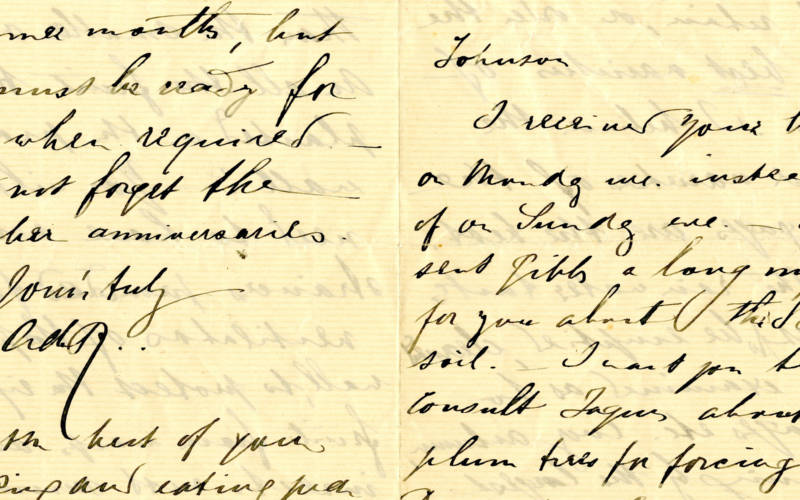 months, but
must be ready for
when required —
not forget the
anniversaries.
Yours truly
best of your
and eating
Johnson
I received your
on Monday eve. instea
of on Sunday eve. —
sent Gibbs a long
for you about this
soil. — I want you t
consult about
plum trees for forcing